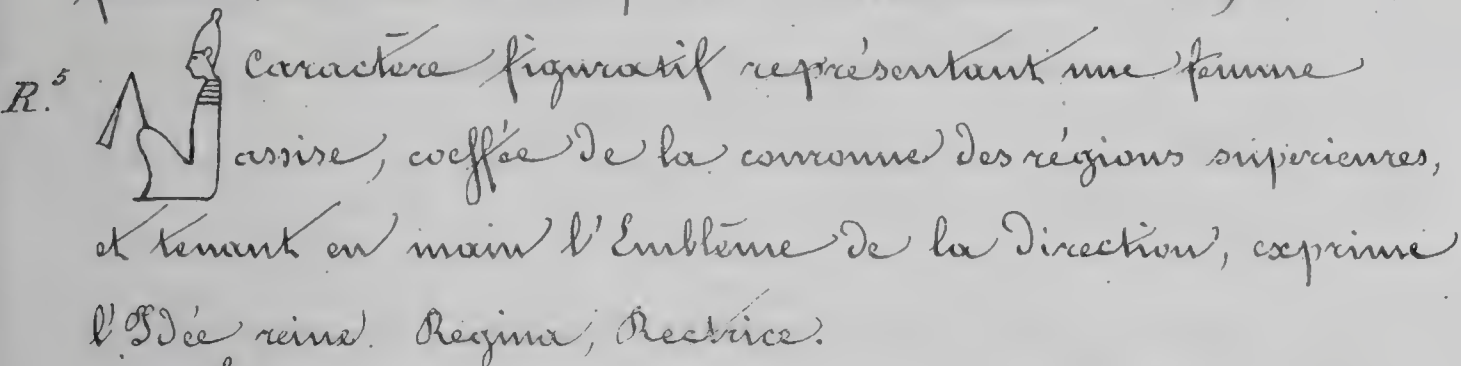 R.⁵ Caractère figuratif représentant une femme
assise, coeffée de la couronne des régions superieures,
et tenant en main l'Emblême de la Direction, exprime
l'Idée reine. Regina, Rectrice.